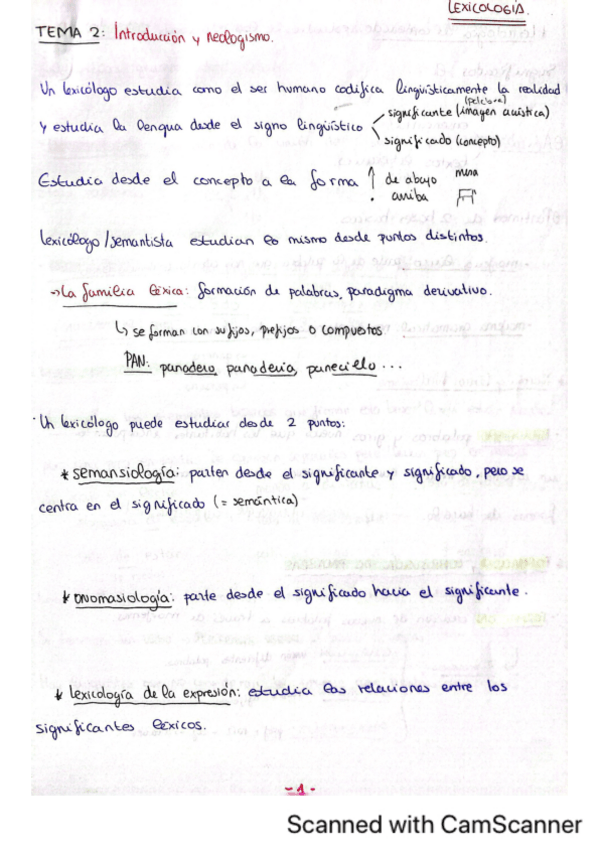 LEXICOLOGÍA.
TEMA 2: Introducción y neologismo.
Un lexicólogo estudia como el ser humano codifica lingüísticamente la realidad
(palabra)
y estudia la lengua desde el signo lingüístico significante (imagen acústica)
significado (concepto)
Estudia desde el concepto a la forma ↑ de abajo mesa
arriba
lexicólogo/semantista estudian lo mismo desde puntos distintos.
→ La familia léxica: formación de palabras, paradigma derivativo.
↳ se forman con sufijos, prefijos o compuestos.
PAN: panadero, panadería, panecillo...
· Un lexicólogo puede estudiar desde 2 puntos:
* semansiología: parten desde el significante y significado, pero se
centra en el significado (= semántica)
* onomasiología: parte desde el significado hacia el significante.
* lexicología de la expresión: estudia las relaciones entre los
significantes léxicos.
-1-
Scanned with CamScanner